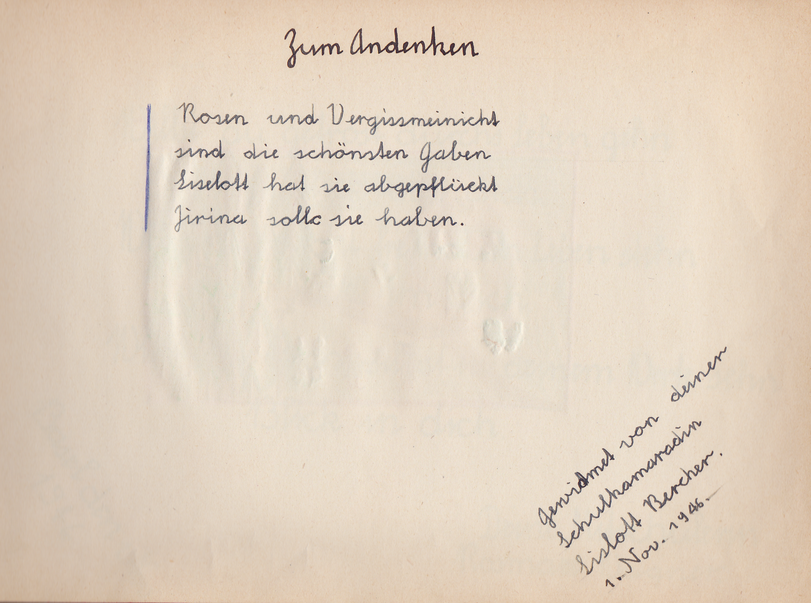 Zum Andenken
Rosen und Vergissmeinicht
sind die schönsten Gaben
Liselott hat sie abgepflückt
Jirina solls sie haben.
Gewidmet von deiner
Schulkamaradin
Lislott Bercher.
1. Nov. 1946.-